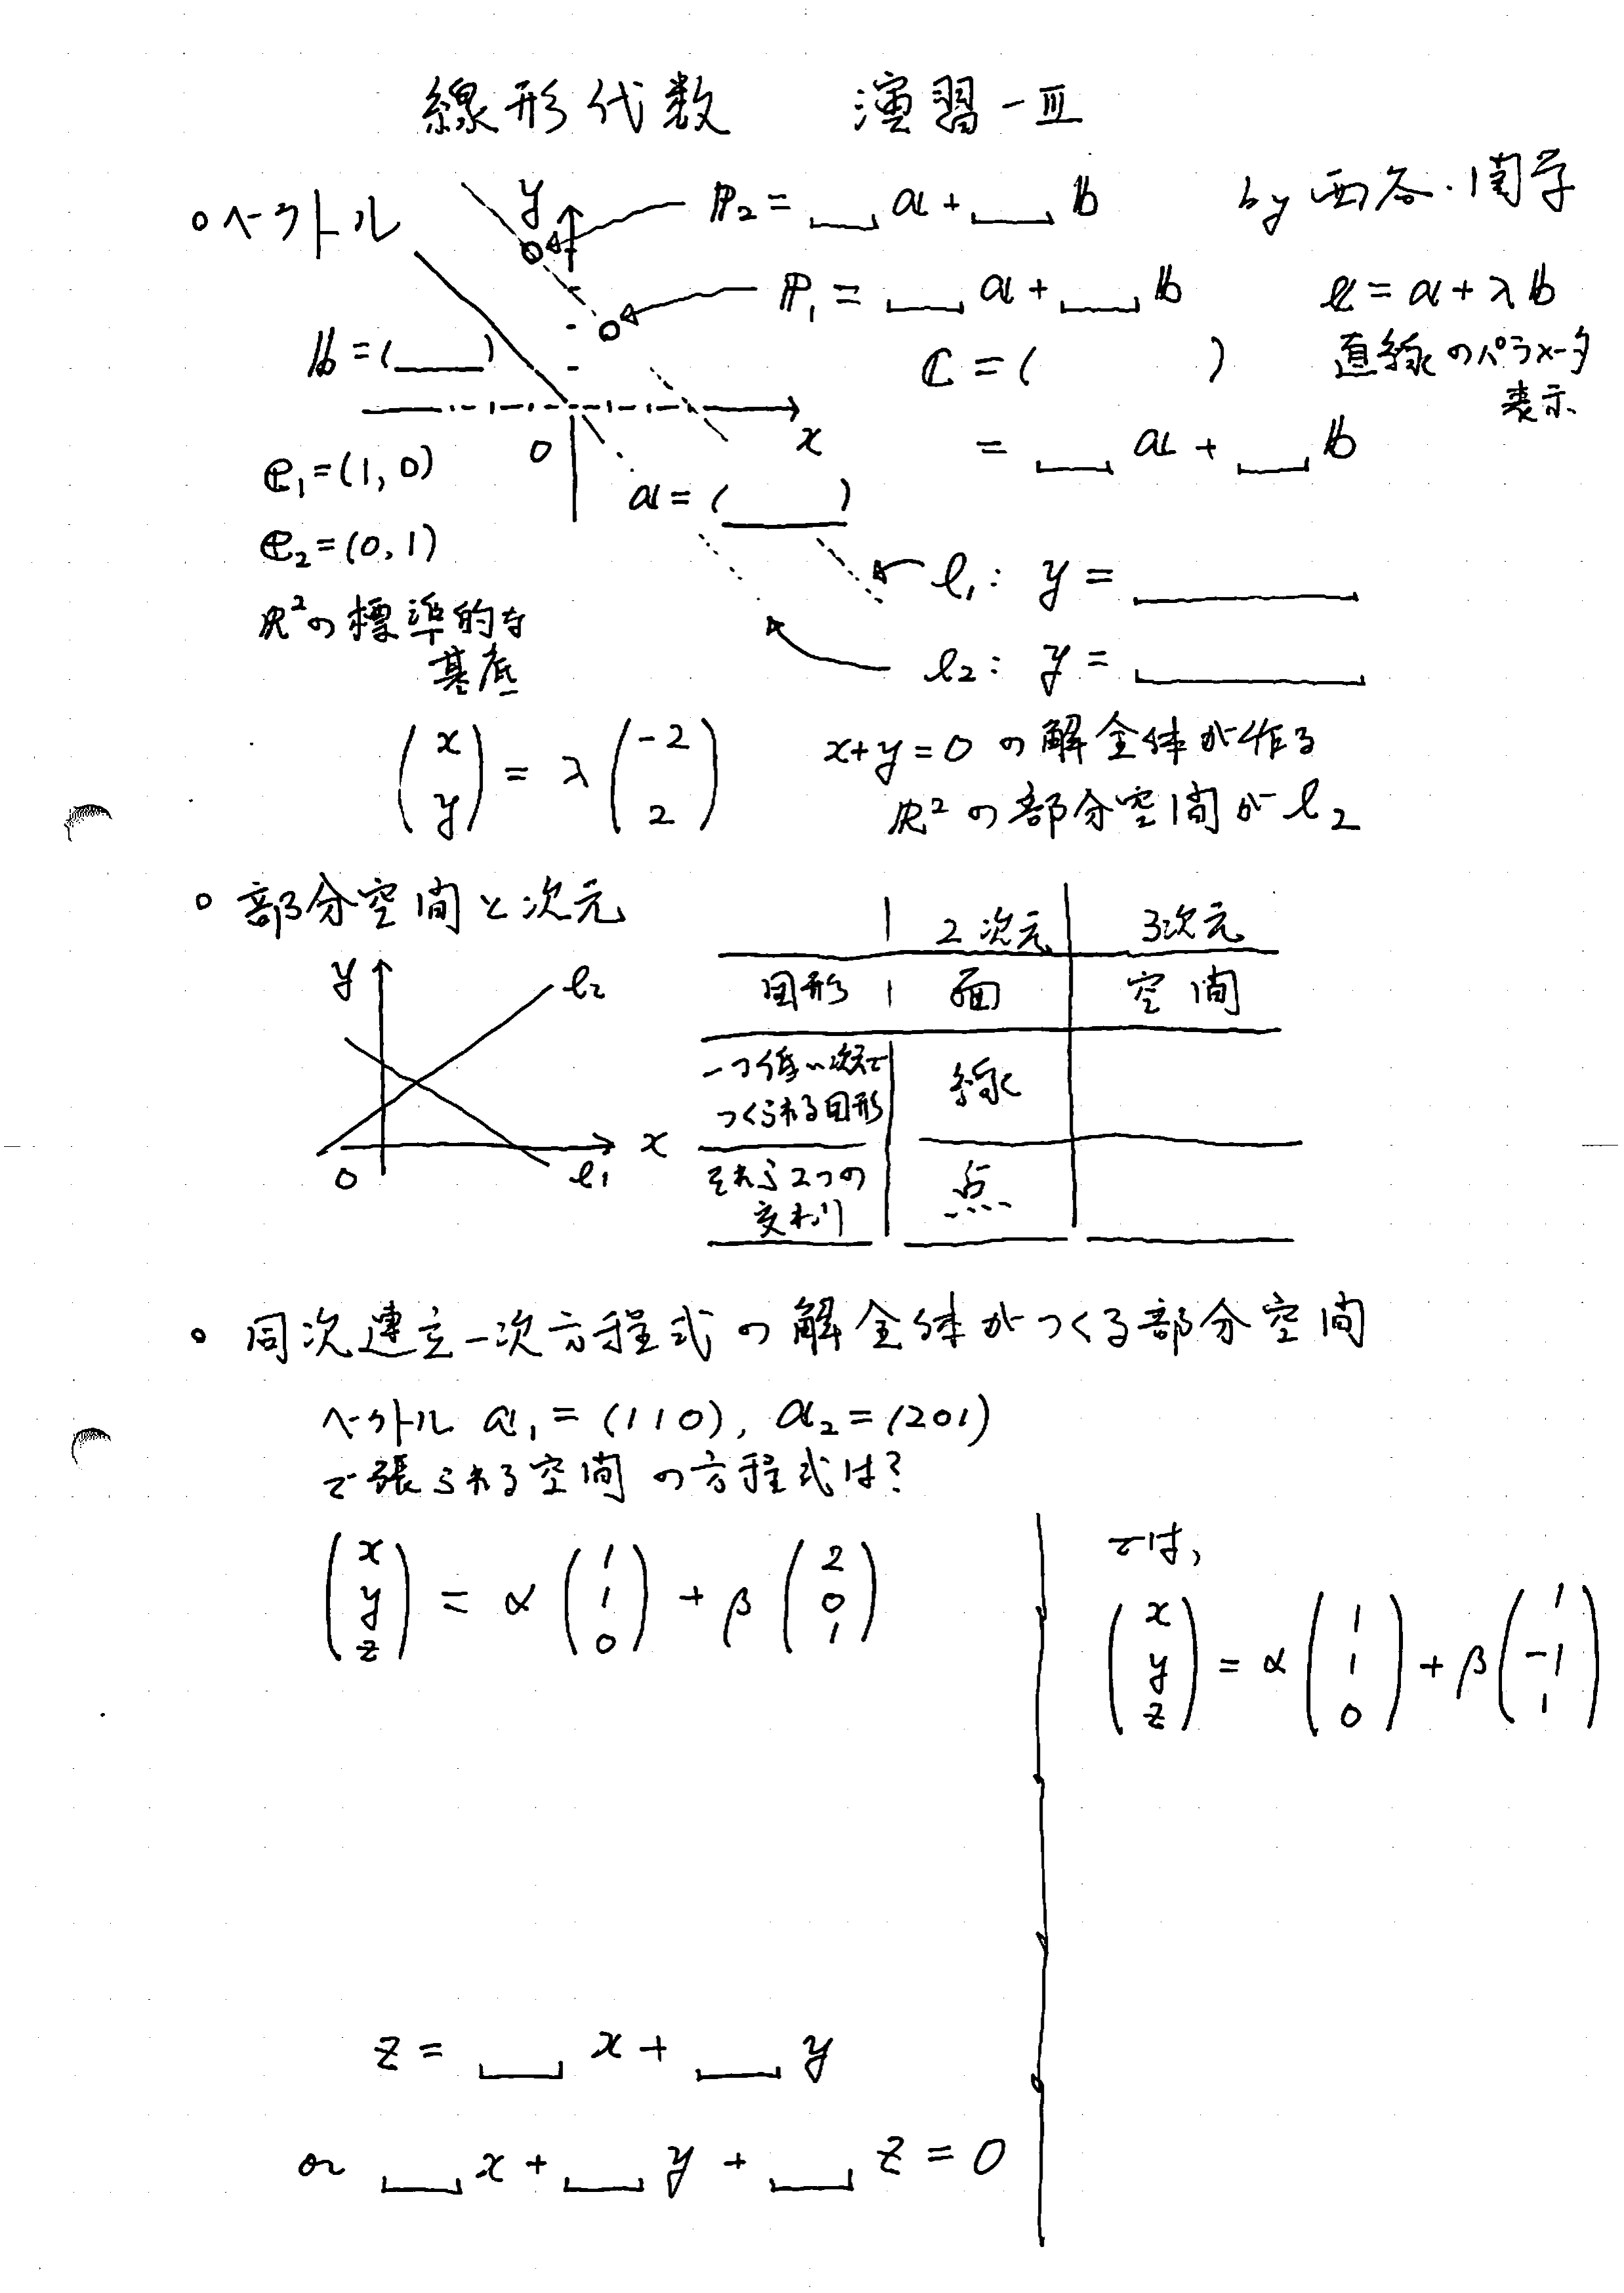 線形代数 演習-Ⅲ
by 西谷・関学
○ベクトル
y
P₂ = __ a + __ b
P₁ = __ a + __ b
x = a + λb
直線のパラメータ
表示
b = (____)
C = ( )
= __ a + __ b
x
0
e₁ = (1, 0)
e₂ = (0, 1)
R²の標準的な
基底
a = (____)
l₁: y = ____
l₂: y = ____
(x y) = λ (-2 2)
x+y=0 の解全体が作る
R²の部分空間が l₂
○ 部分空間と次元
y
l₂
x
0
l₁
2次元 3次元
図形 面 空間
一つ低い次元で
つくられる図形 線
それら2つの
交わり 点
○ 同次連立一次方程式の解全体がつくる部分空間
ベクトル a₁ = (1 1 0), a₂ = (2 0 1)
で張られる空間の方程式は?
(x y z) = α (1 1 0) + β (2 0 1)
では、
(x y z) = α (1 1 0) + β (1 -1 1)
z = __ x + __ y
or __ x + __ y + __ z = 0